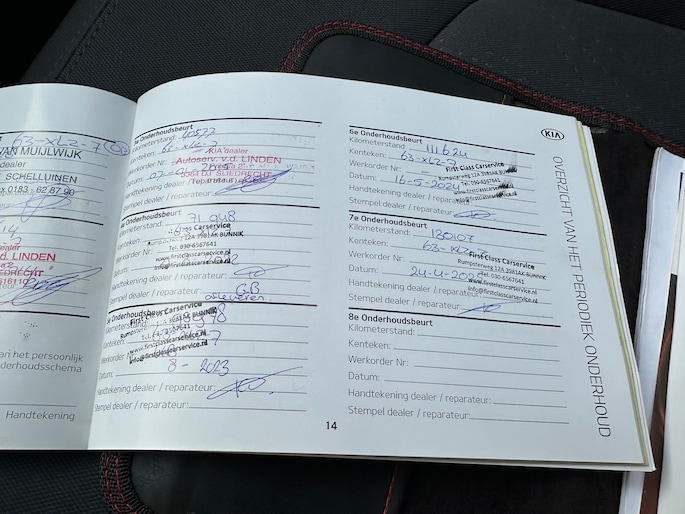 63-XLZ-7
VAN MUIJLWIJK
dealer
SCHELLUINEN
0183 - 62 87 90
dealer
LINDEN
EDRECHT
an het persoonlijk
derhoudsschema
Handtekening
Onderhoudsbeurt
Kilometerstand: 40577
Kenteken: 63-XLZ-7
KIA dealer
Werkorder Nr:
Autoserv. v.d. LINDEN
Datum:
SLIEDRECHT
Handtekening dealer / reparateur:
Stempel dealer / reparateur:
4e Onderhoudsbeurt
Kilometerstand: 71 948
Kenteken:
First Class Carservice
Rumpsterweg 12A 3981AK BUNNIK
Werkorder Nr:
Tel. 030-6567641
www.firstclasscarservice.nl
Datum:
info@firstclasscarservice.nl
Handtekening dealer / reparateur:
Stempel dealer / reparateur:
Onderhoudsbeurt
First Class Carservice
Kilometerstand:
Rumpsterweg 12A 3981AK BUNNIK
Tel. 030-6567641
Werkorder Nr:
www.firstclasscarservice.nl
info@firstclasscarservice.nl
Datum: 8 - 2023
Handtekening dealer / reparateur:
Stempel dealer / reparateur:
14
6e Onderhoudsbeurt
Kilometerstand: 111624
Kenteken: 63-XLZ-7
First Class Carservice
Werkorder Nr: -
Rumpsterweg 12A 3981AK BUNNIK
Tel. 030-6567641
Datum: 16-5-2024
Handtekening dealer / reparateur:
Stempel dealer / reparateur:
7e Onderhoudsbeurt
Kilometerstand: 130107
Kenteken: 63-XLZ-7
First Class Carservice
Werkorder Nr:
Rumpsterweg 12A 3981AK BUNNIK
Tel. 030-6567641
Datum: 24-4-2025
www.firstclasscarservice.nl
Handtekening dealer / reparateur:
info@firstclasscarservice.nl
Stempel dealer / reparateur:
8e Onderhoudsbeurt
Kilometerstand:
Kenteken:
Werkorder Nr:
Datum:
Handtekening dealer / reparateur:
Stempel dealer / reparateur:
KIA
OVERZICHT VAN HET PERIODIEK ONDERHOUD